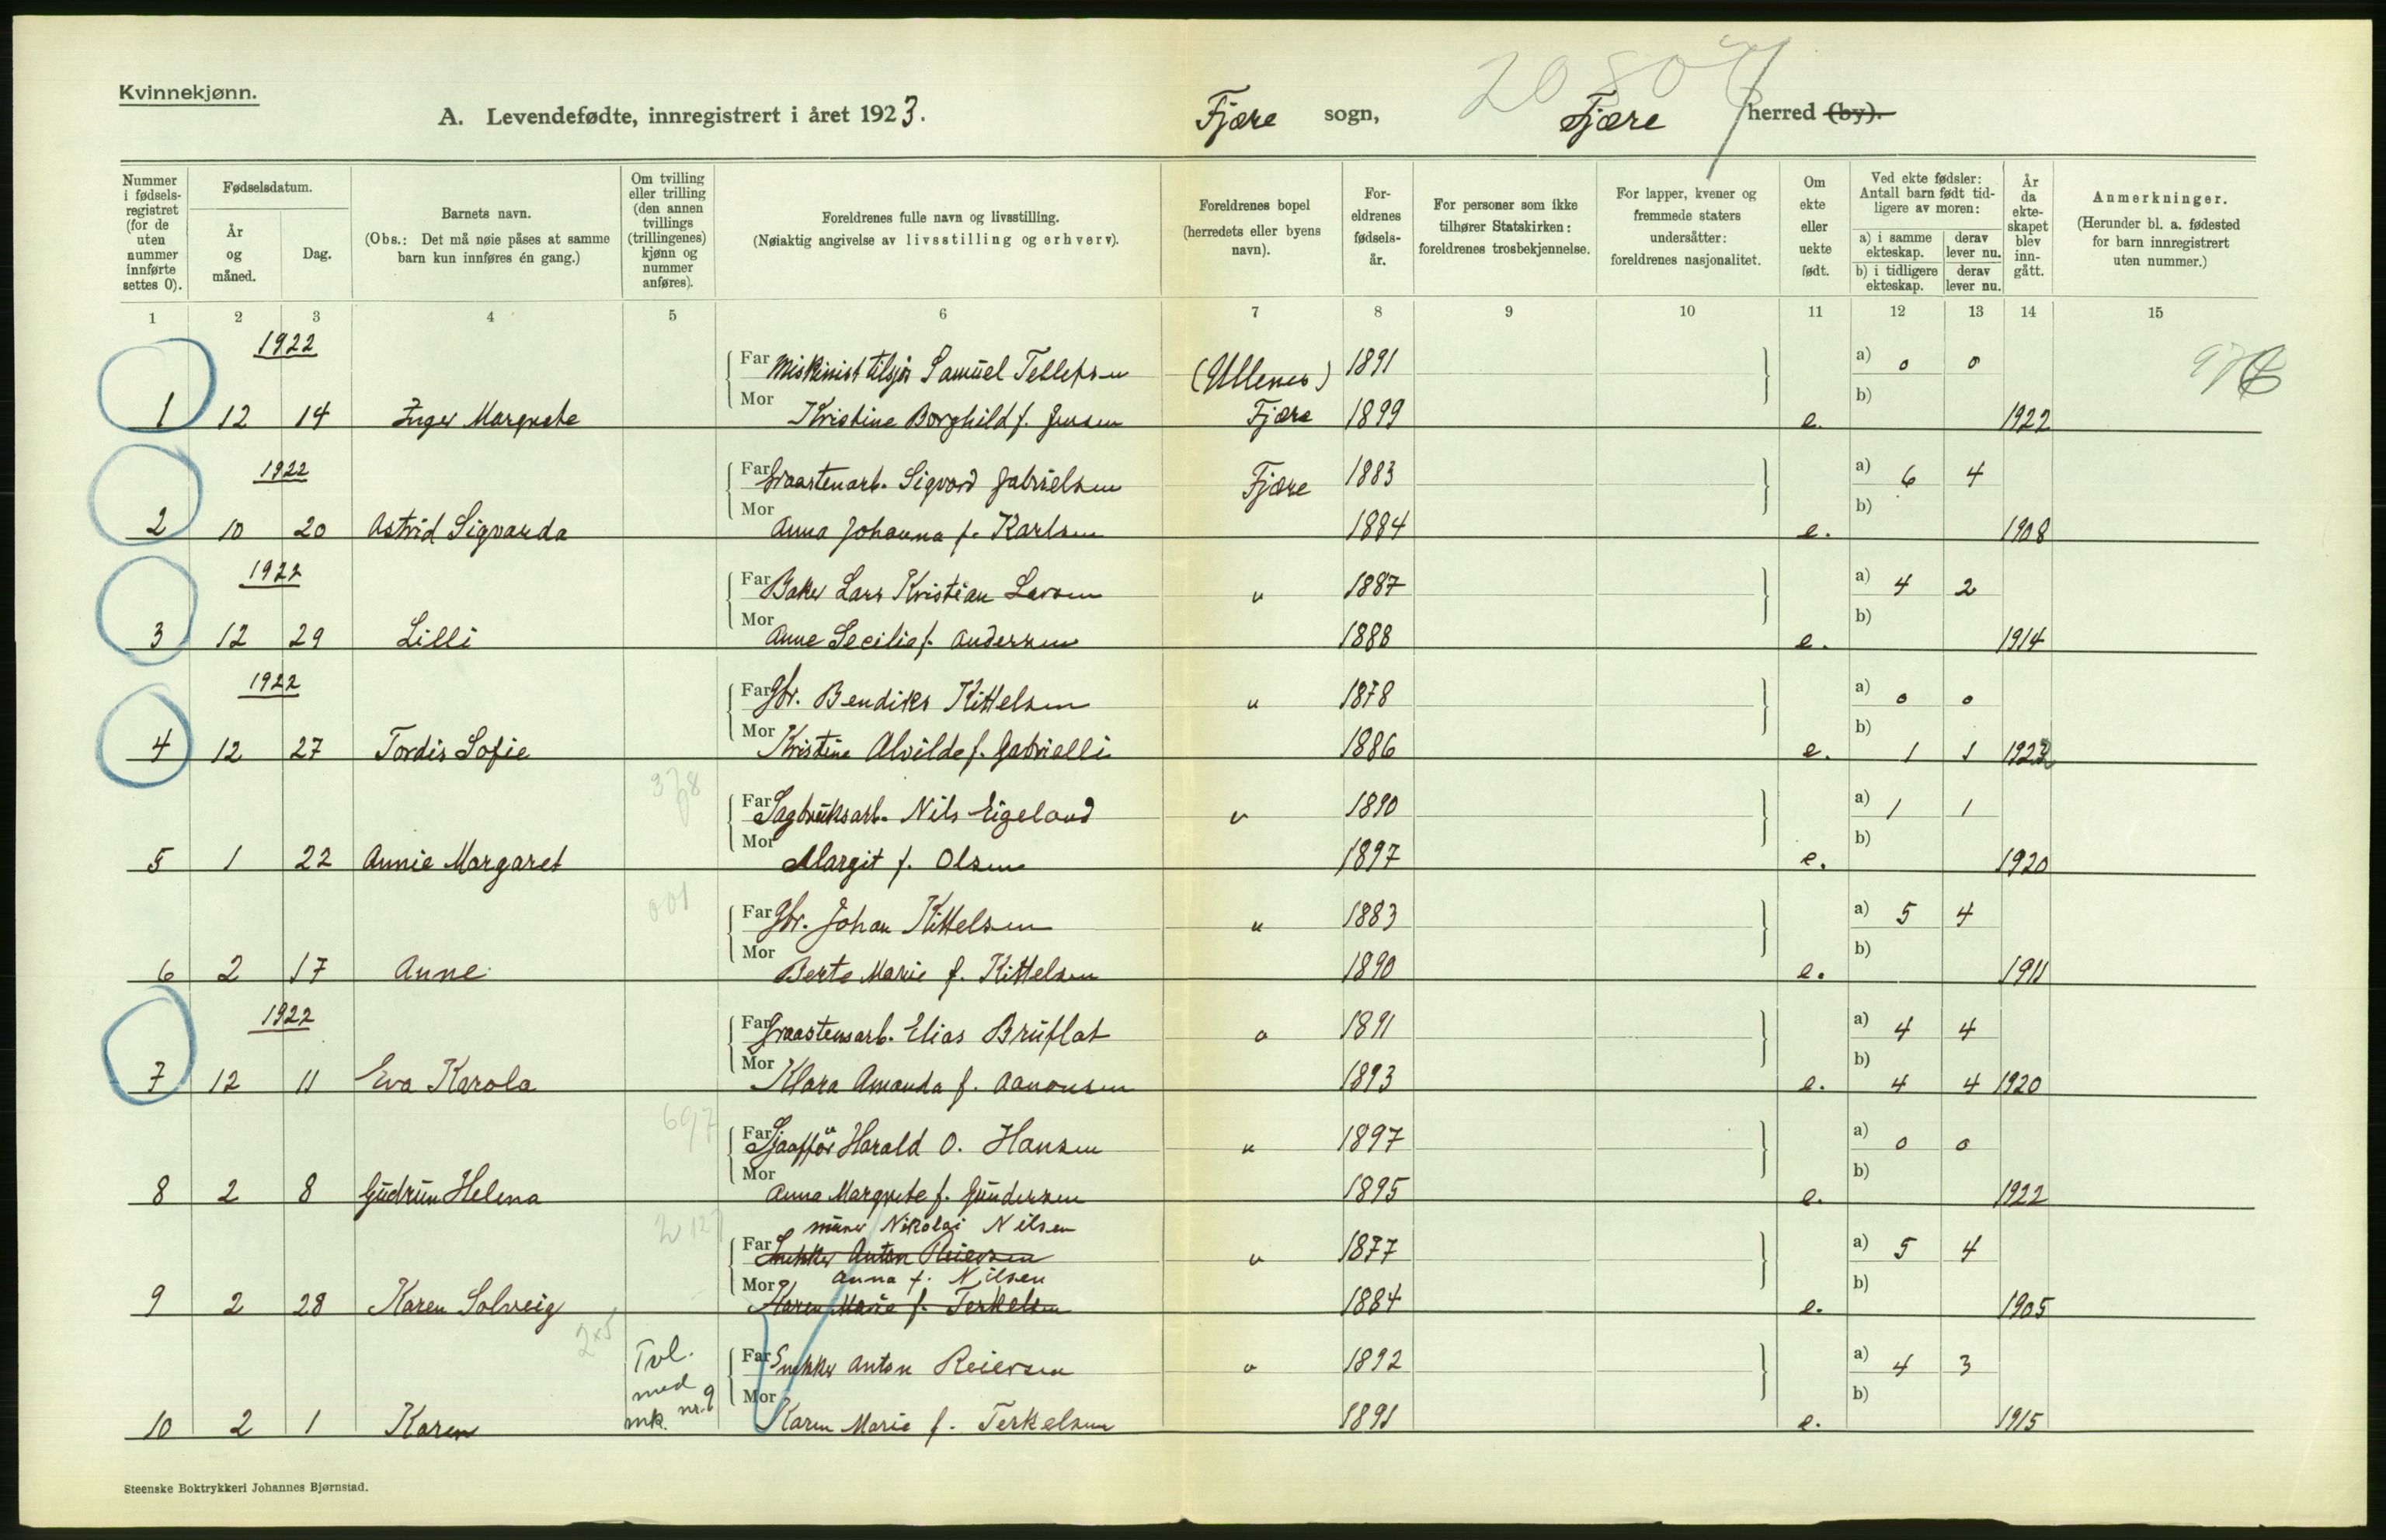 Kvinnekjønn.
A. Levendefødte, innregistrert i året 1923.
Fjære sogn, Fjære herred (by).
20 807
Nummer i fødsels-registret (for de uten nummer innførte settes 0).
Fødselsdatum.
År og måned.
Dag.
Barnets navn.
(Obs.: Det må nøie påses at samme barn kun innføres én gang.)
Om tvilling eller trilling (den annen tvillings (trillingenes) kjønn og nummer anføres).
Foreldrenes fulle navn og livsstilling.
(Nøiaktig angivelse av livsstilling og erhverv).
Foreldrenes bopel (herredets eller byens navn).
For-eldrenes fødsels-år.
For personer som ikke tilhører Statskirken: foreldrenes trosbekjennelse.
For lapper, kvener og fremmede staters undersåtter: foreldrenes nasjonalitet.
Om ekte eller uekte født.
Ved ekte fødsler: Antall barn født tid-ligere av moren:
a) i samme ekteskap.
derav lever nu.
b) i tidligere ekteskap.
derav lever nu.
År da ekte-skapet blev inn-gått.
Anmerkninger.
(Herunder bl. a. fødested for barn innregistrert uten nummer.)
1 2 3 4 5 6 7 8 9 10 11 12 13 14 15
1922
Far Maskinist tilsjøs Samuel Tellefsen (Ullenes) 1891 a) 0 0
Mor b)
1 12 14 Inger Margrete Kristine Borghild f. Jensen Fjære 1899 e. 1922
1922
Far Graastenarb. Sigvard Gabrielsen Fjære 1883 a) 6 4
Mor b)
2 10 20 Astrid Sigvarda Anna Johanna f. Karlsen 1884 e. 1908
1922
Far Baker Lars Kristian Larsen " 1887 a) 4 2
Mor b)
3 12 29 Lilli Anne Secilie f. Andersen 1888 e. 1914
1922
Far Gbr. Bendiks Kittelsen " 1878 a) 0 0
Mor b)
4 12 27 Tordis Sofie Kristine Alvilde f. Gabrielli 1886 e. 1 1 1922
378
Far Sagbruksarb. Nils Eigeland " 1890 a) 1 1
Mor b)
5 1 22 Annie Margaret Margit f. Olsen 1897 e. 1920
001
Far Gbr. Johan Kittelsen " 1883 a) 5 4
Mor b)
6 2 17 Anne Berte Marie f. Kittelsen 1890 e. 1911
1922
Far Graastensarb. Elias Bruflat " 1891 a) 4 4
Mor b)
7 12 11 Eva Karola Klara Amanda f. Aanonsen 1893 e. 4 4 1920
697
Far Sjaaffør Harald O. Hansen " 1897 a) 0 0
Mor b)
8 2 8 Gudrun Helena Anna Margrete f. Gundersen 1895 e. 1922
murer Nikolai Nilsen
Far Snekker Anton Reiersen " 1877 a) 5 4
Mor Anna f. Nilsen b)
9 2 28 Karen Solveig Karen Marie f. Terkelsen 1884 e. 1905
2x5
Tvl. med mk. nr. 9
Far Snekker Anton Reiersen " 1892 a) 4 3
Mor b)
10 2 1 Karen Karen Marie f. Terkelsen 1891 e. 1915
Steenske Boktrykkeri Johannes Bjørnstad.